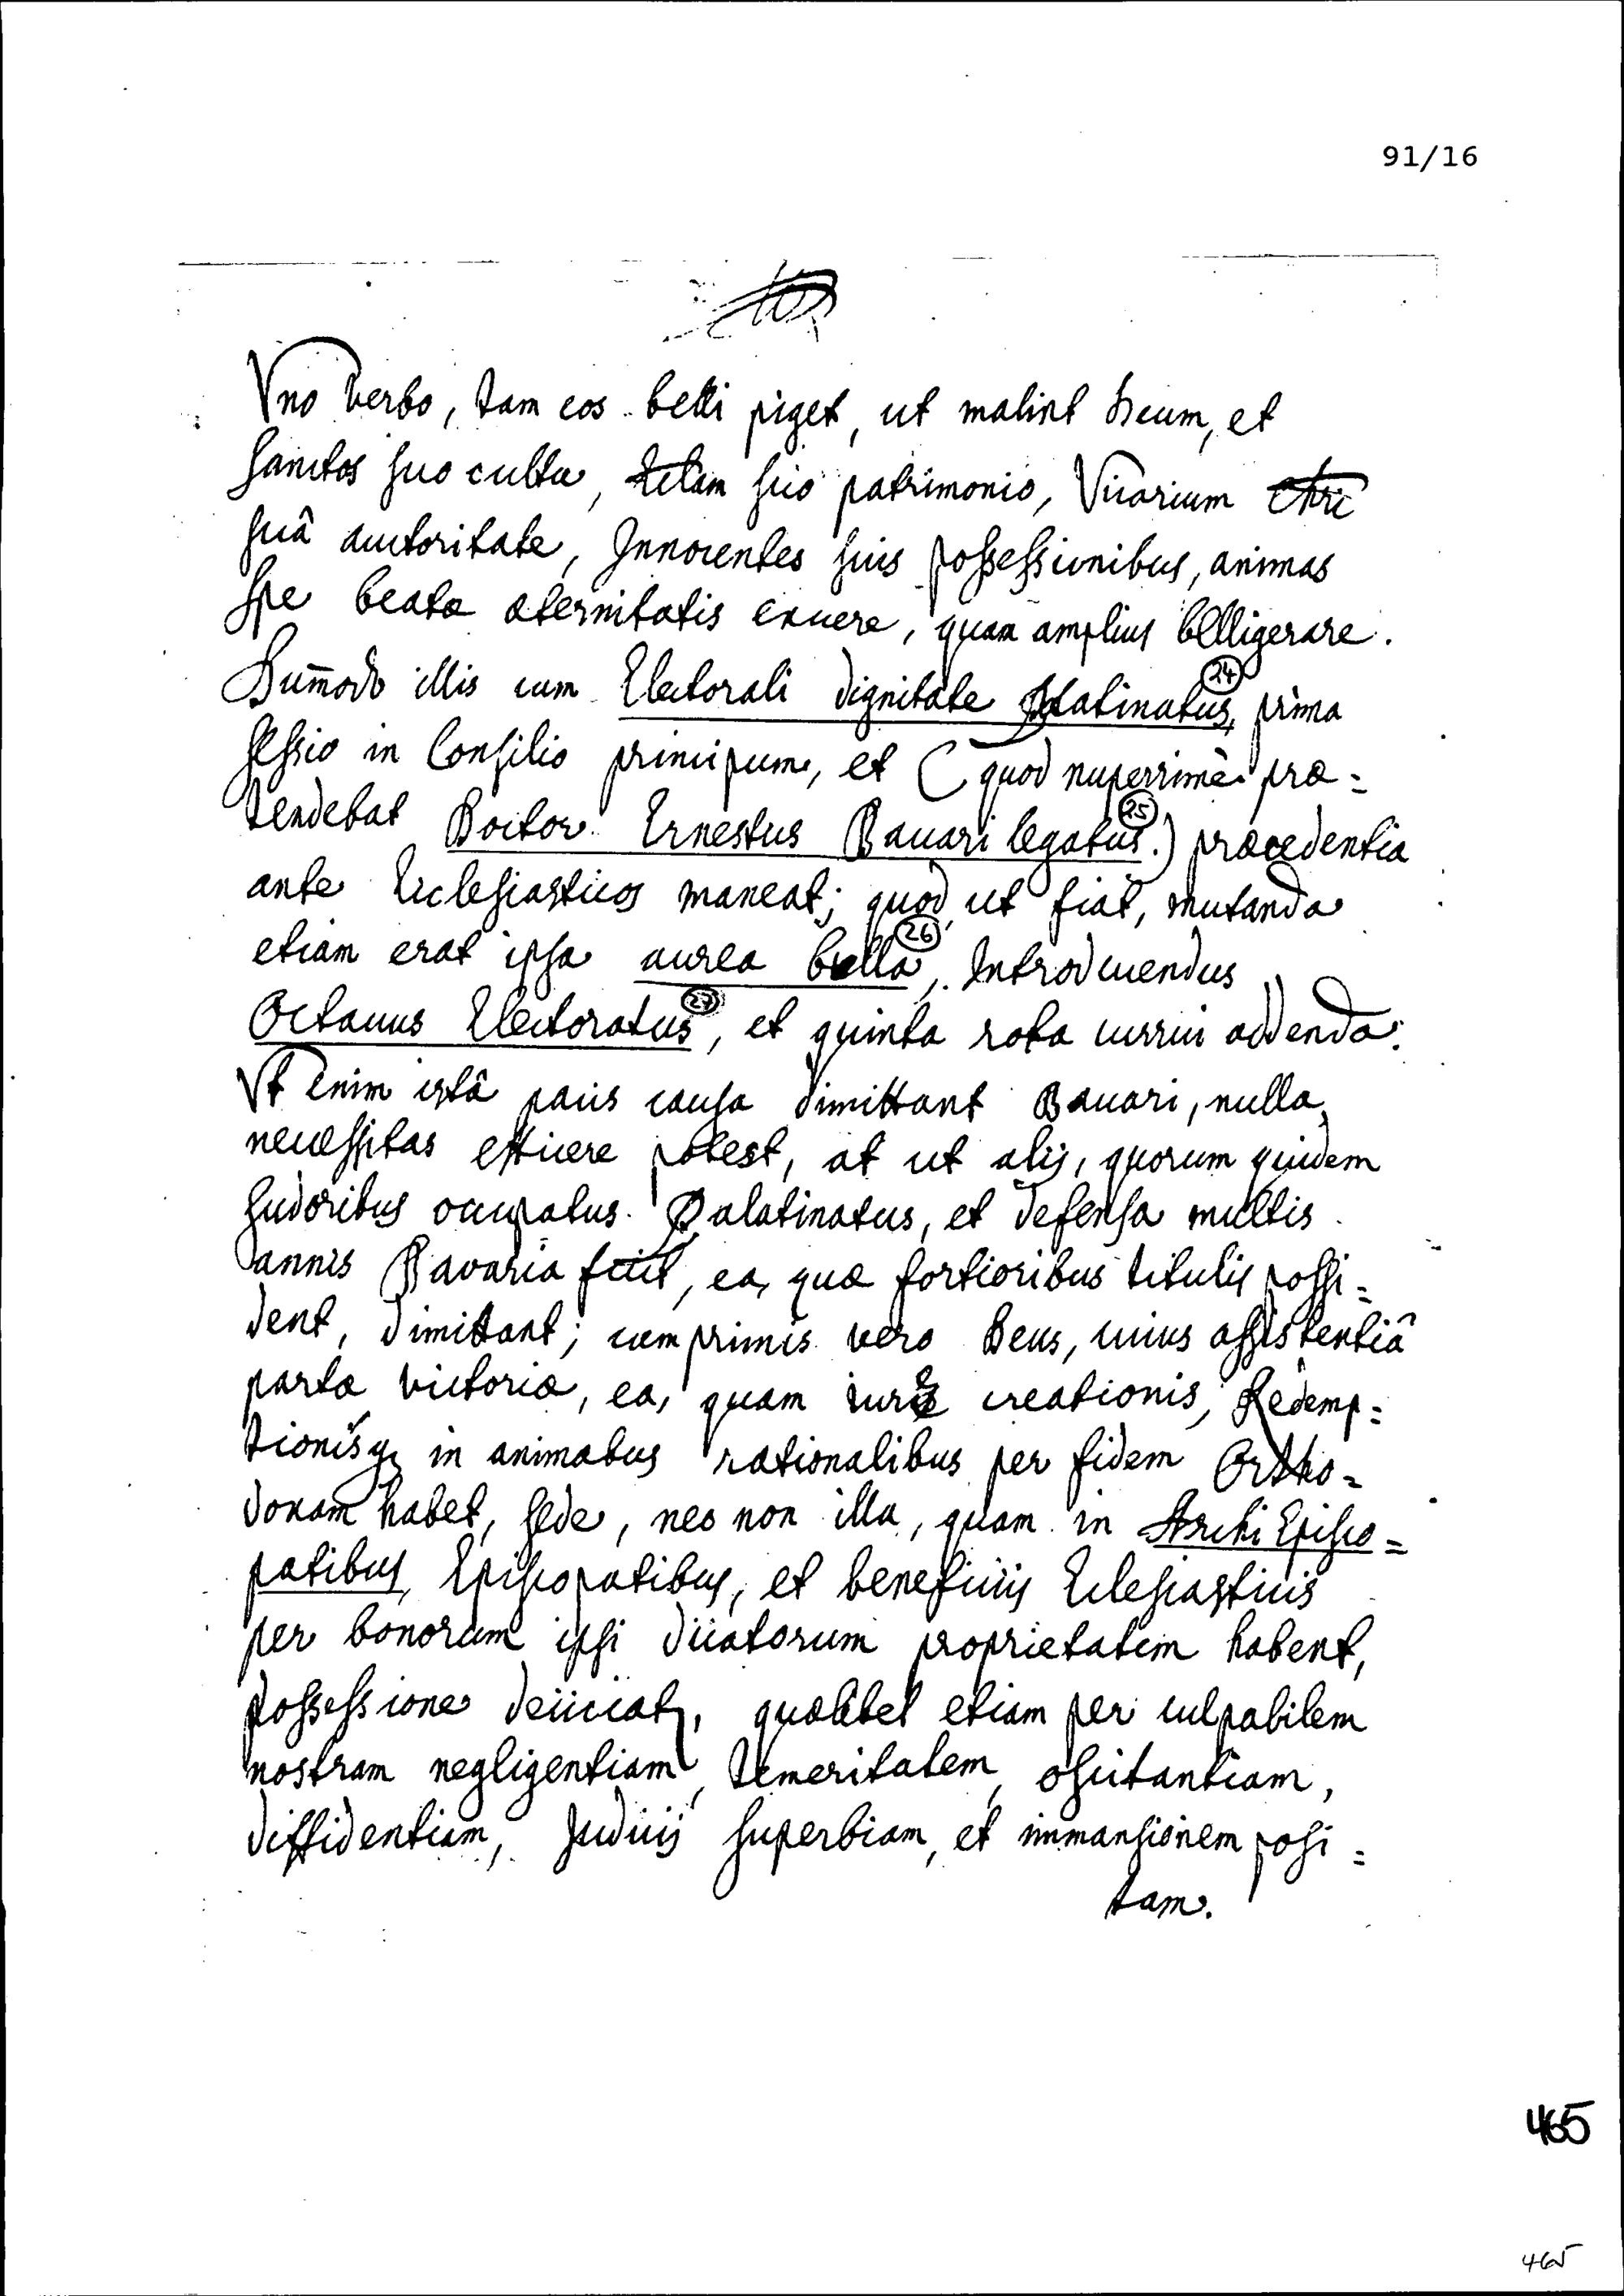 91/16
Vno verbo, tam eos belli piget, ut malint Deum, et
sanctos suo cultu, suo patrimonio, Vicarium Chri
suâ auctoritate, Innocentes suis possessionibus, animas
spe beatæ æternitatis exuere, quam amplius belligerare.
Dum̄odo illis cum Electorali dignitate Palatinatus, 24 prima
sessio in Consilio principum, et ( quod nuperrimè præ=
tendebat Doctor Ernestus Bauari legatus 25.) præcedentia
ante Ecclesiasticos maneat; quod ut fiat, mutanda
etiam erat ipsa aurea bulla 26, Introducendus
Octauus Electoratus 27, et quinta rota currui addenda:
Vt enim istâ pacis causa dimittant Bauari, nulla
necessitas efficere potest, at ut alij, quorum quidem
sudoribus occupatus Palatinatus, et defensa multis
annis Bavaria fuit, ea, quæ fortioribus titulis possi=
dent, dimittant; cum primis vero Deus, cuius assistentiâ
partæ victoriæ, ea, quam iure creationis, Redemp=
tionisq in animabus rationalibus per fidem Ortho=
doxam habet, sede, nec non illa, quam in Archi Episco=
patibus, Episcopatibus, et beneficiis Eclesiasticis
per bonorum ipsi dicatorum proprietatem habent,
possessione deiiciatr, quælibet etiam per culpabilem
nostram negligentiam, temeritatem, oscitantiam,
diffidentiam, Judicij superbiam, et immansionem posi=
tam.
465
465